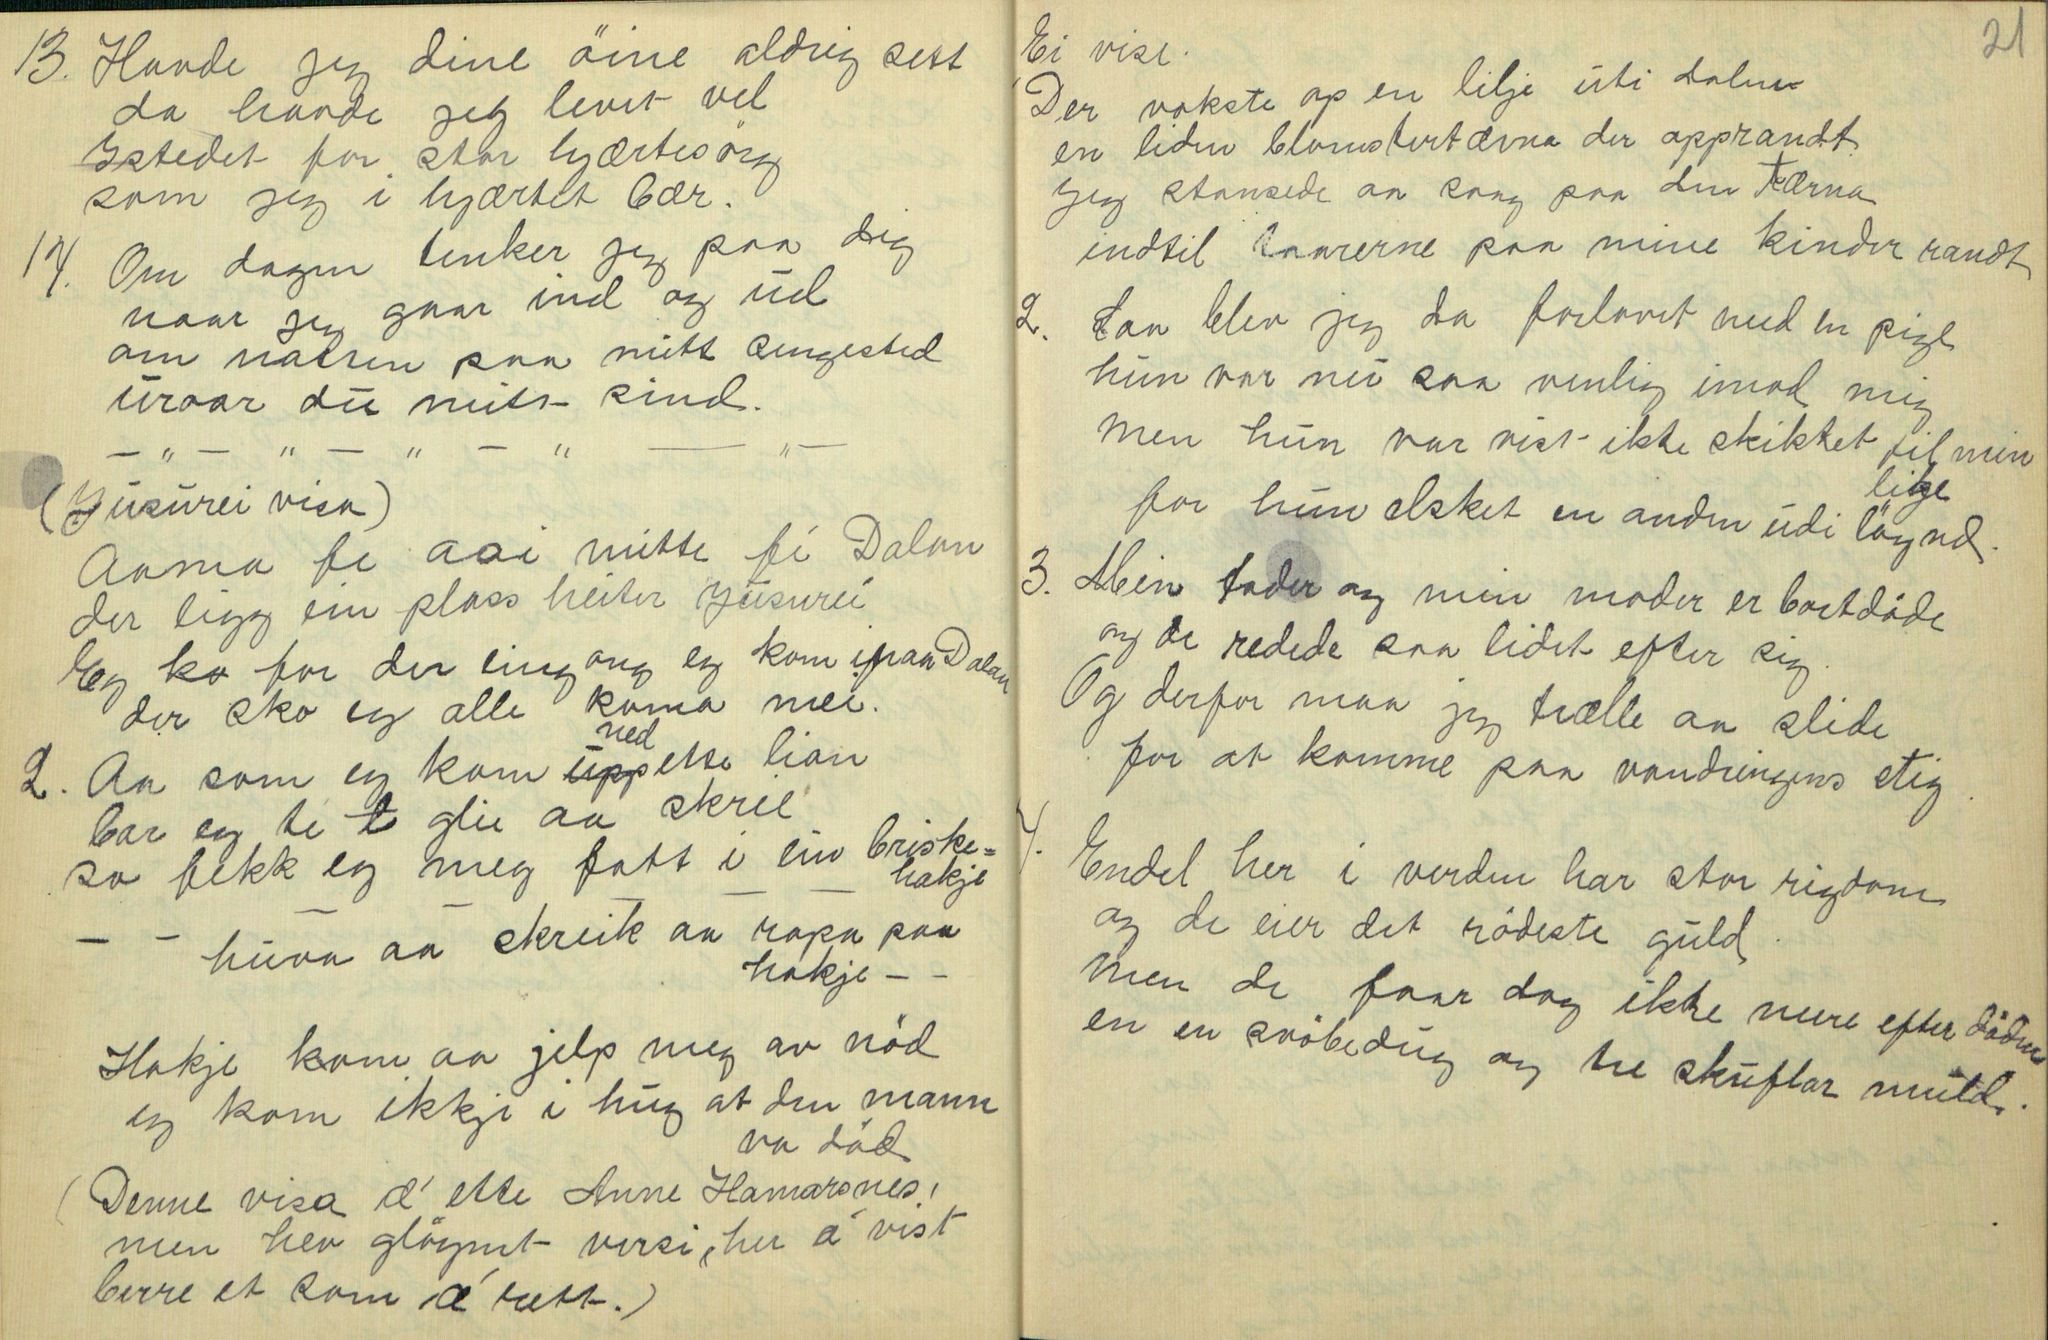 13. Havde jeg dine öine aldrig sett
da havde jeg levet vel
Istedet for stor hjærtesörg
som jeg i hjærtet bær.
14. Om dagen tenker jeg paa dig
naar jeg gaar ind og ud
om natten paa mitt sengested
uroar du mitt sind.
— „ — „ — „ — „ — „ —
(Jusurei visa)
Aama fe aai mitte fi Dalan
der ligg ein plass heiter Jusurei
Eg ko for der eingong eg kom ifraa Dalan
der sko eg alle koma mei.
2. Aa som eg kom upp ette lian
ned
bar eg te t glie aa skrie
so fekk eg meg fatt i ein briske=
hakje
— — — — — — —
huva aa skreik aa ropa paa
hakje — —
Hakje kom aa jelp meg av nöd
eg kom ikkje i hug at den mann
va död
(Denne visa æ' ette Anne Hamarsnes,
men hev glöymt versi, her æ' vist
berre et som æ' rett.)
21
Ei vise.
Der vokste op en lilje uti dalen
en liden blomstertærna der opprandt
jeg stansede aa saag paa den tærna
indtil taarerne paa mine kinder randt
2. Saa blev jeg da forlovet med en pige
hun var nu saa venlig imod mig
men hun var vist ikke skikket til min
lige
for hun elsket en anden udi löynd.
3. Min fader og min moder er bortdöde
og de redede saa lidet efter sig.
Og derfor maa jeg trælle aa slide
for at komme paa vandringens stig.
4. Endel her i verden har stor rigdom
og de eier det rödeste guld.
men de faar dog ikke mere efter döden
en en svöbedug og tre skuflar muld.